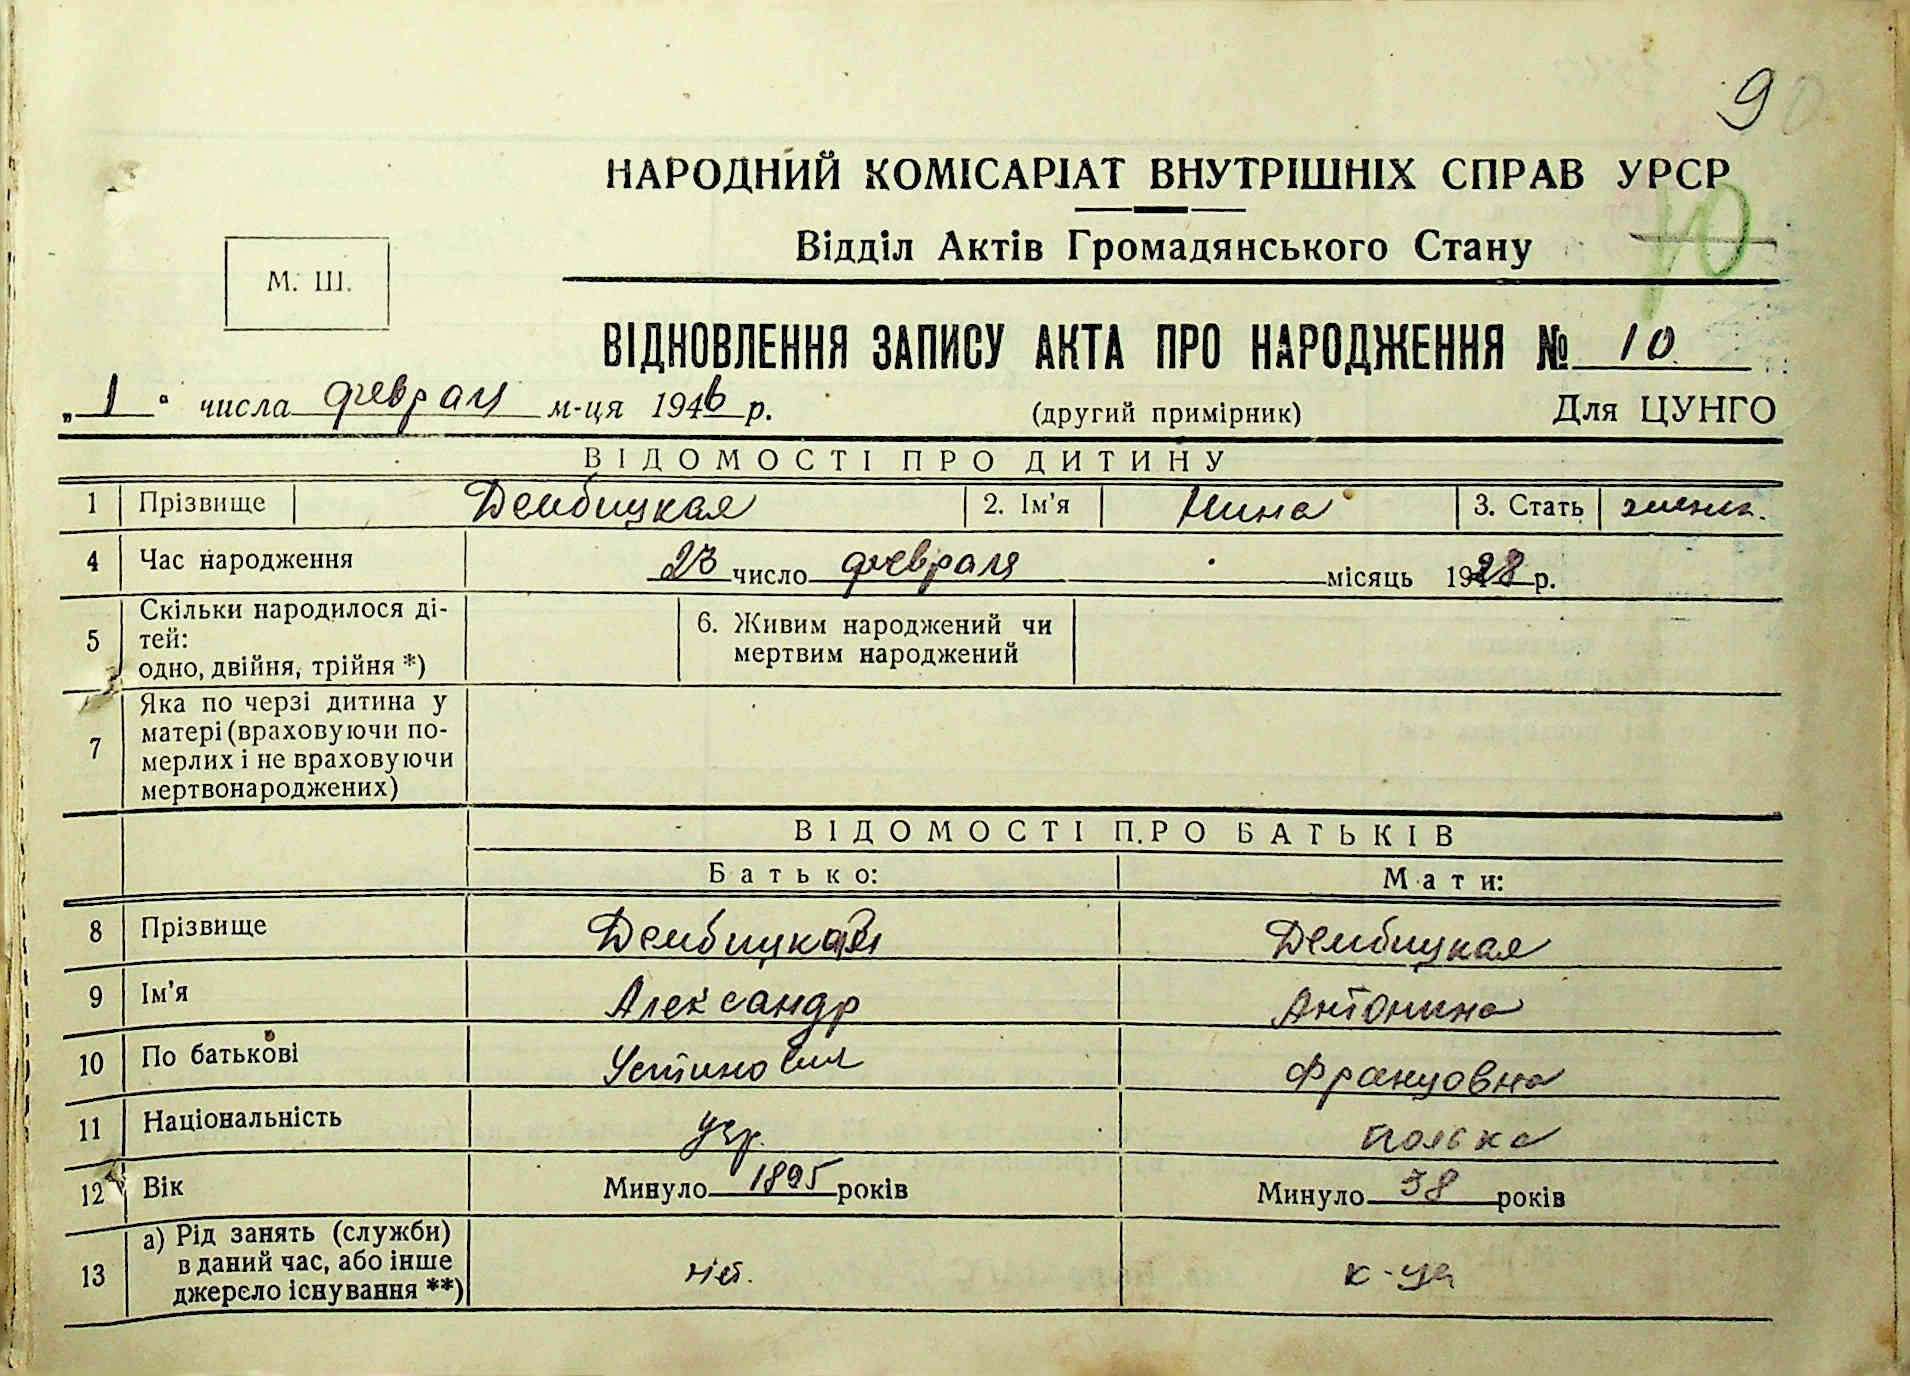 9
НАРОДНИЙ КОМІСАРІАТ ВНУТРІШНІХ СПРАВ УРСР
Відділ Актів Громадянського Стану
10
М. Ш.
ВІДНОВЛЕННЯ ЗАПИСУ АКТА ПРО НАРОДЖЕННЯ № 10
„1“ числа февраля м-ця 1946 р. (другий примірник) Для ЦУНГО
ВІДОМОСТІ ПРО ДИТИНУ
1 Прізвище Дембицкая 2. Ім'я Нина 3. Стать женск.
4 Час народження 23 число февраля місяць 1928 р.
5 Скільки народилося ді-
тей:
одно, двійня, трійня *) 6. Живим народжений чи
мертвим народжений
7 Яка по черзі дитина у
матері (враховуючи по-
мерлих і не враховуючи
мертвонароджених)
ВІДОМОСТІ ПРО БАТЬКІВ
Батько: Мати:
8 Прізвище Дембицкий Дембицкая
9 Ім'я Александр Антонина
10 По батькові Устинович Францовна
11 Національність укр. полька
12 Вік Минуло 1895 років Минуло 38 років
13 а) Рід занять (служби)
в даний час, або інше
джерело існування **) нет. к-ца